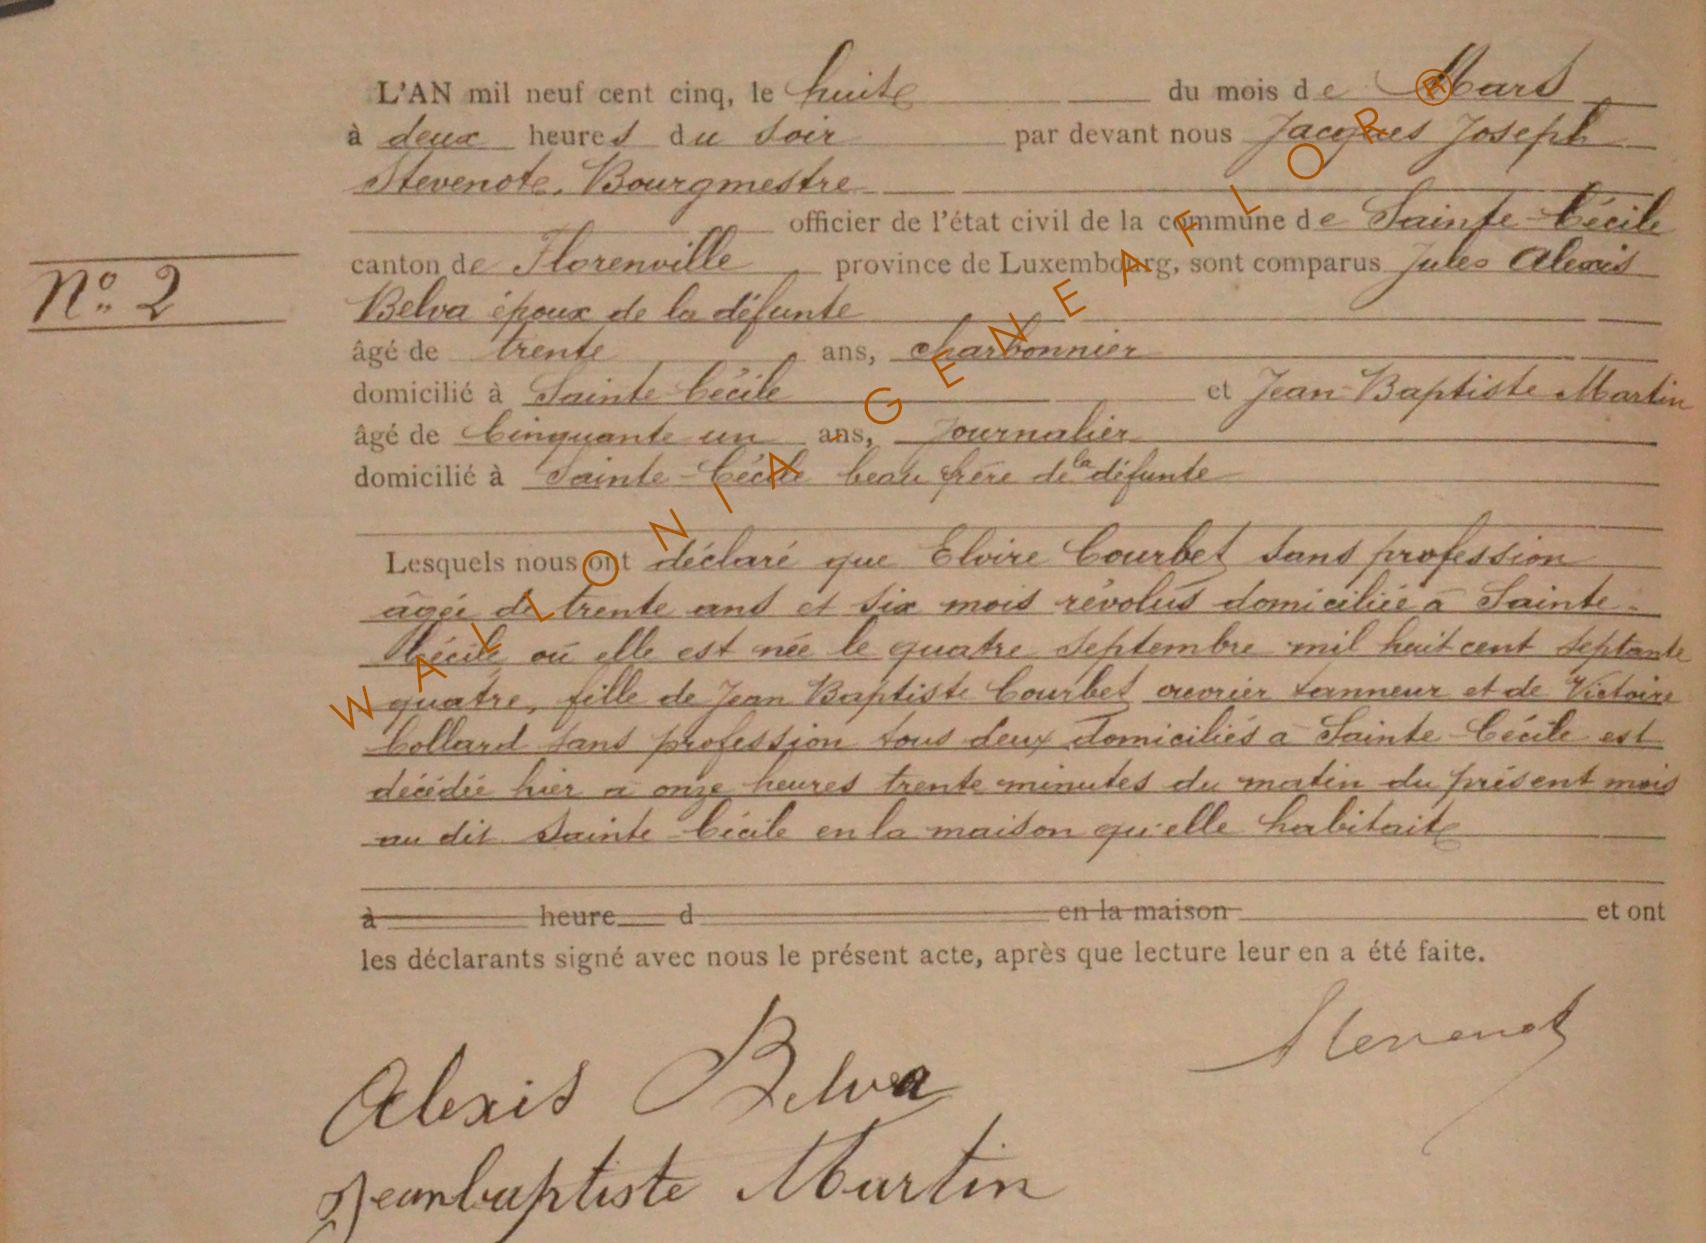 L'AN mil neuf cent cinq, le huit du mois de Mars
à deux heures du soir par devant nous Jacques Joseph
Stevenote, Bourgmestre
officier de l'état civil de la commune de Sainte-Cécile
canton de Florenville province de Luxembourg, sont comparus Jules Alexis
N° 2
Belva époux de la défunte
âgé de trente ans, charbonnier
domicilié à Sainte Cécile et Jean-Baptiste Martin
âgé de Cinquante un ans, journalier
domicilié à Sainte-Cécile beau frère de la défunte
Lesquels nous ont déclaré que Elvire Courbet sans profession
âgée de trente ans et six mois révolus domiciliée à Sainte-
Cécile où elle est née le quatre septembre mil huit cent septante
quatre, fille de Jean Baptiste Courbet ouvrier tanneur et de Victoire
Collard sans profession tous deux domiciliés à Sainte Cécile est
décédée hier à onze heures trente minutes du matin du présent mois
au dit Sainte Cécile en la maison qu'elle habitait
à heure d en la maison et ont
les déclarants signé avec nous le présent acte, après que lecture leur en a été faite.
Stevenot
Alexis Belva
Jeanbaptiste Martin
WALLONIA - GENEAFLOR ®